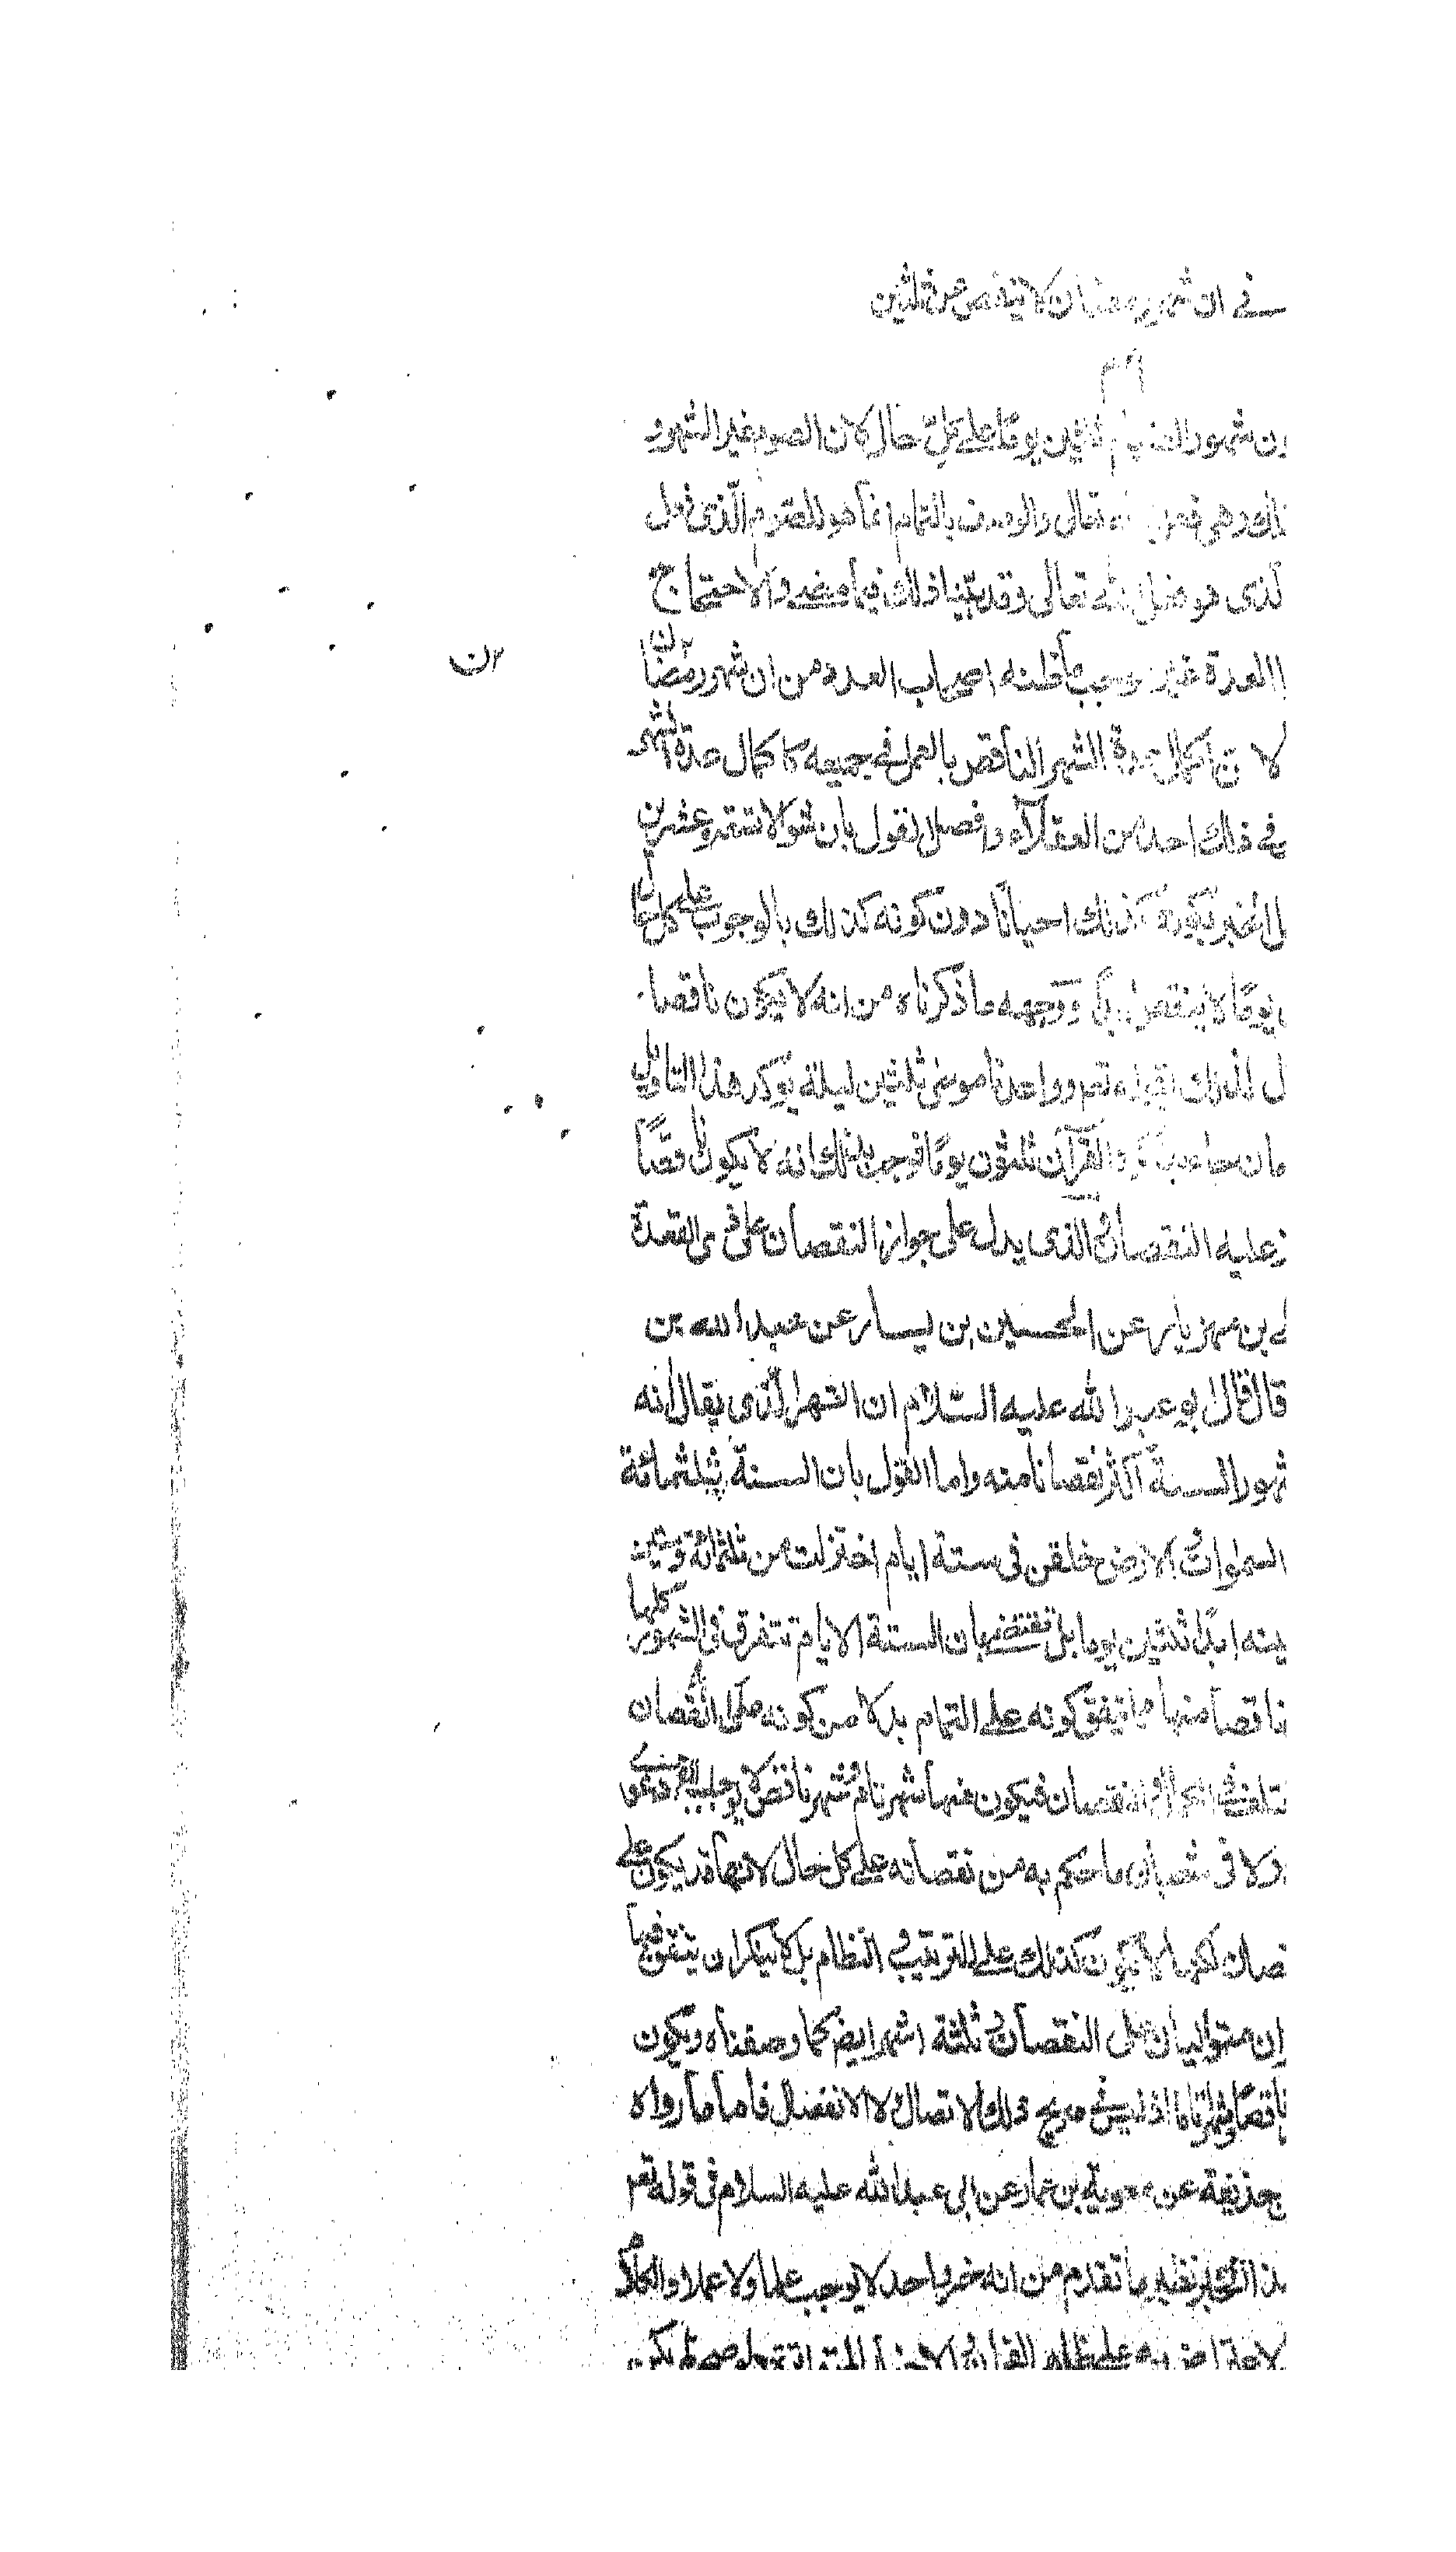 في ان شهر رمضان لا ينقص عن ثلثين
ن شهور الصيام ثلثين يوما على كل حال لان الصوم غير الشهور
وهي فعل الله تعالى والوصف بالتمام انما هو للصوم الذي فعل
لذى هو فعل الله تعالى وقد بينا ذلك فيما مضى والاحتجاج
العدة غير موجب ما ظنه اصحاب العدد من ان شهور رمضان
ن
لا ن اكمال عدة الشهر الناقص بالعمل في جميعه كاكمال عدة الشهر
في ذلك احد من العقلاء و فصل القول بان شوالا تسعة وعشرين
ل الخبر بكونه كذلك احيانا دون كونه كذلك بالوجوب على كل حال
يوما لا ينقص ابدا ووجهه ما ذكرناه من انه لا يكون ناقصا
ل لذلك بقوله تعم وواعدنا موسى ثلثين ليلة يوكد هذا التاويل
القرآن ثلثون يوما فوجب بذلك انه لا يكون ناقصا
ز عليه النقصان والذى يدل على جواز النقصان على ذى القعدة
لى بن مهزيار عن الحسين بن يسار عن عبد الله بن
قال قال ابو عبد الله عليه السلام ان الشهر الذى يقال انه
شهور السنة اكثر نقصانا منه واما القول بان السنة ثلثمائة
السموات والارض خلقن فى ستة ايام اختزلت من ثلثمائة وستين
بعينه ابدا ثلثين يوما بل تقتضي بان الستة الايام تتفرق فى الشهور كلها
ناقصا منها ما يتفق كونه على التمام بدلا من كونه على النقصان
النقصان فيكون منها شهر تام وشهر ناقص لا يوجب
ولا فى شعبان ما حكم به من نقصانه على كل حال لانهما قد يكون على
نقصان لكنهما لا يكون كذلك على الترتيب في النظام بل لا ينكر ان يتفق فيها
ان متواليان على النقصان وثلثة اشهر ايضا كما وصفناه ويكون
ناقصا وشهر تاما اذ ليس في صريح ذلك الاتصال ولا الانفصال فاما ما رواه
بحذيفة عن معوية بن عمار عن ابى عبد الله عليه السلام فى قوله تعم
الخبر نظير ما تقدم من انه خبر واحد لا يوجب علما ولا عملا
لاعتراض به على ظاهر القران والاخبار المتواترة